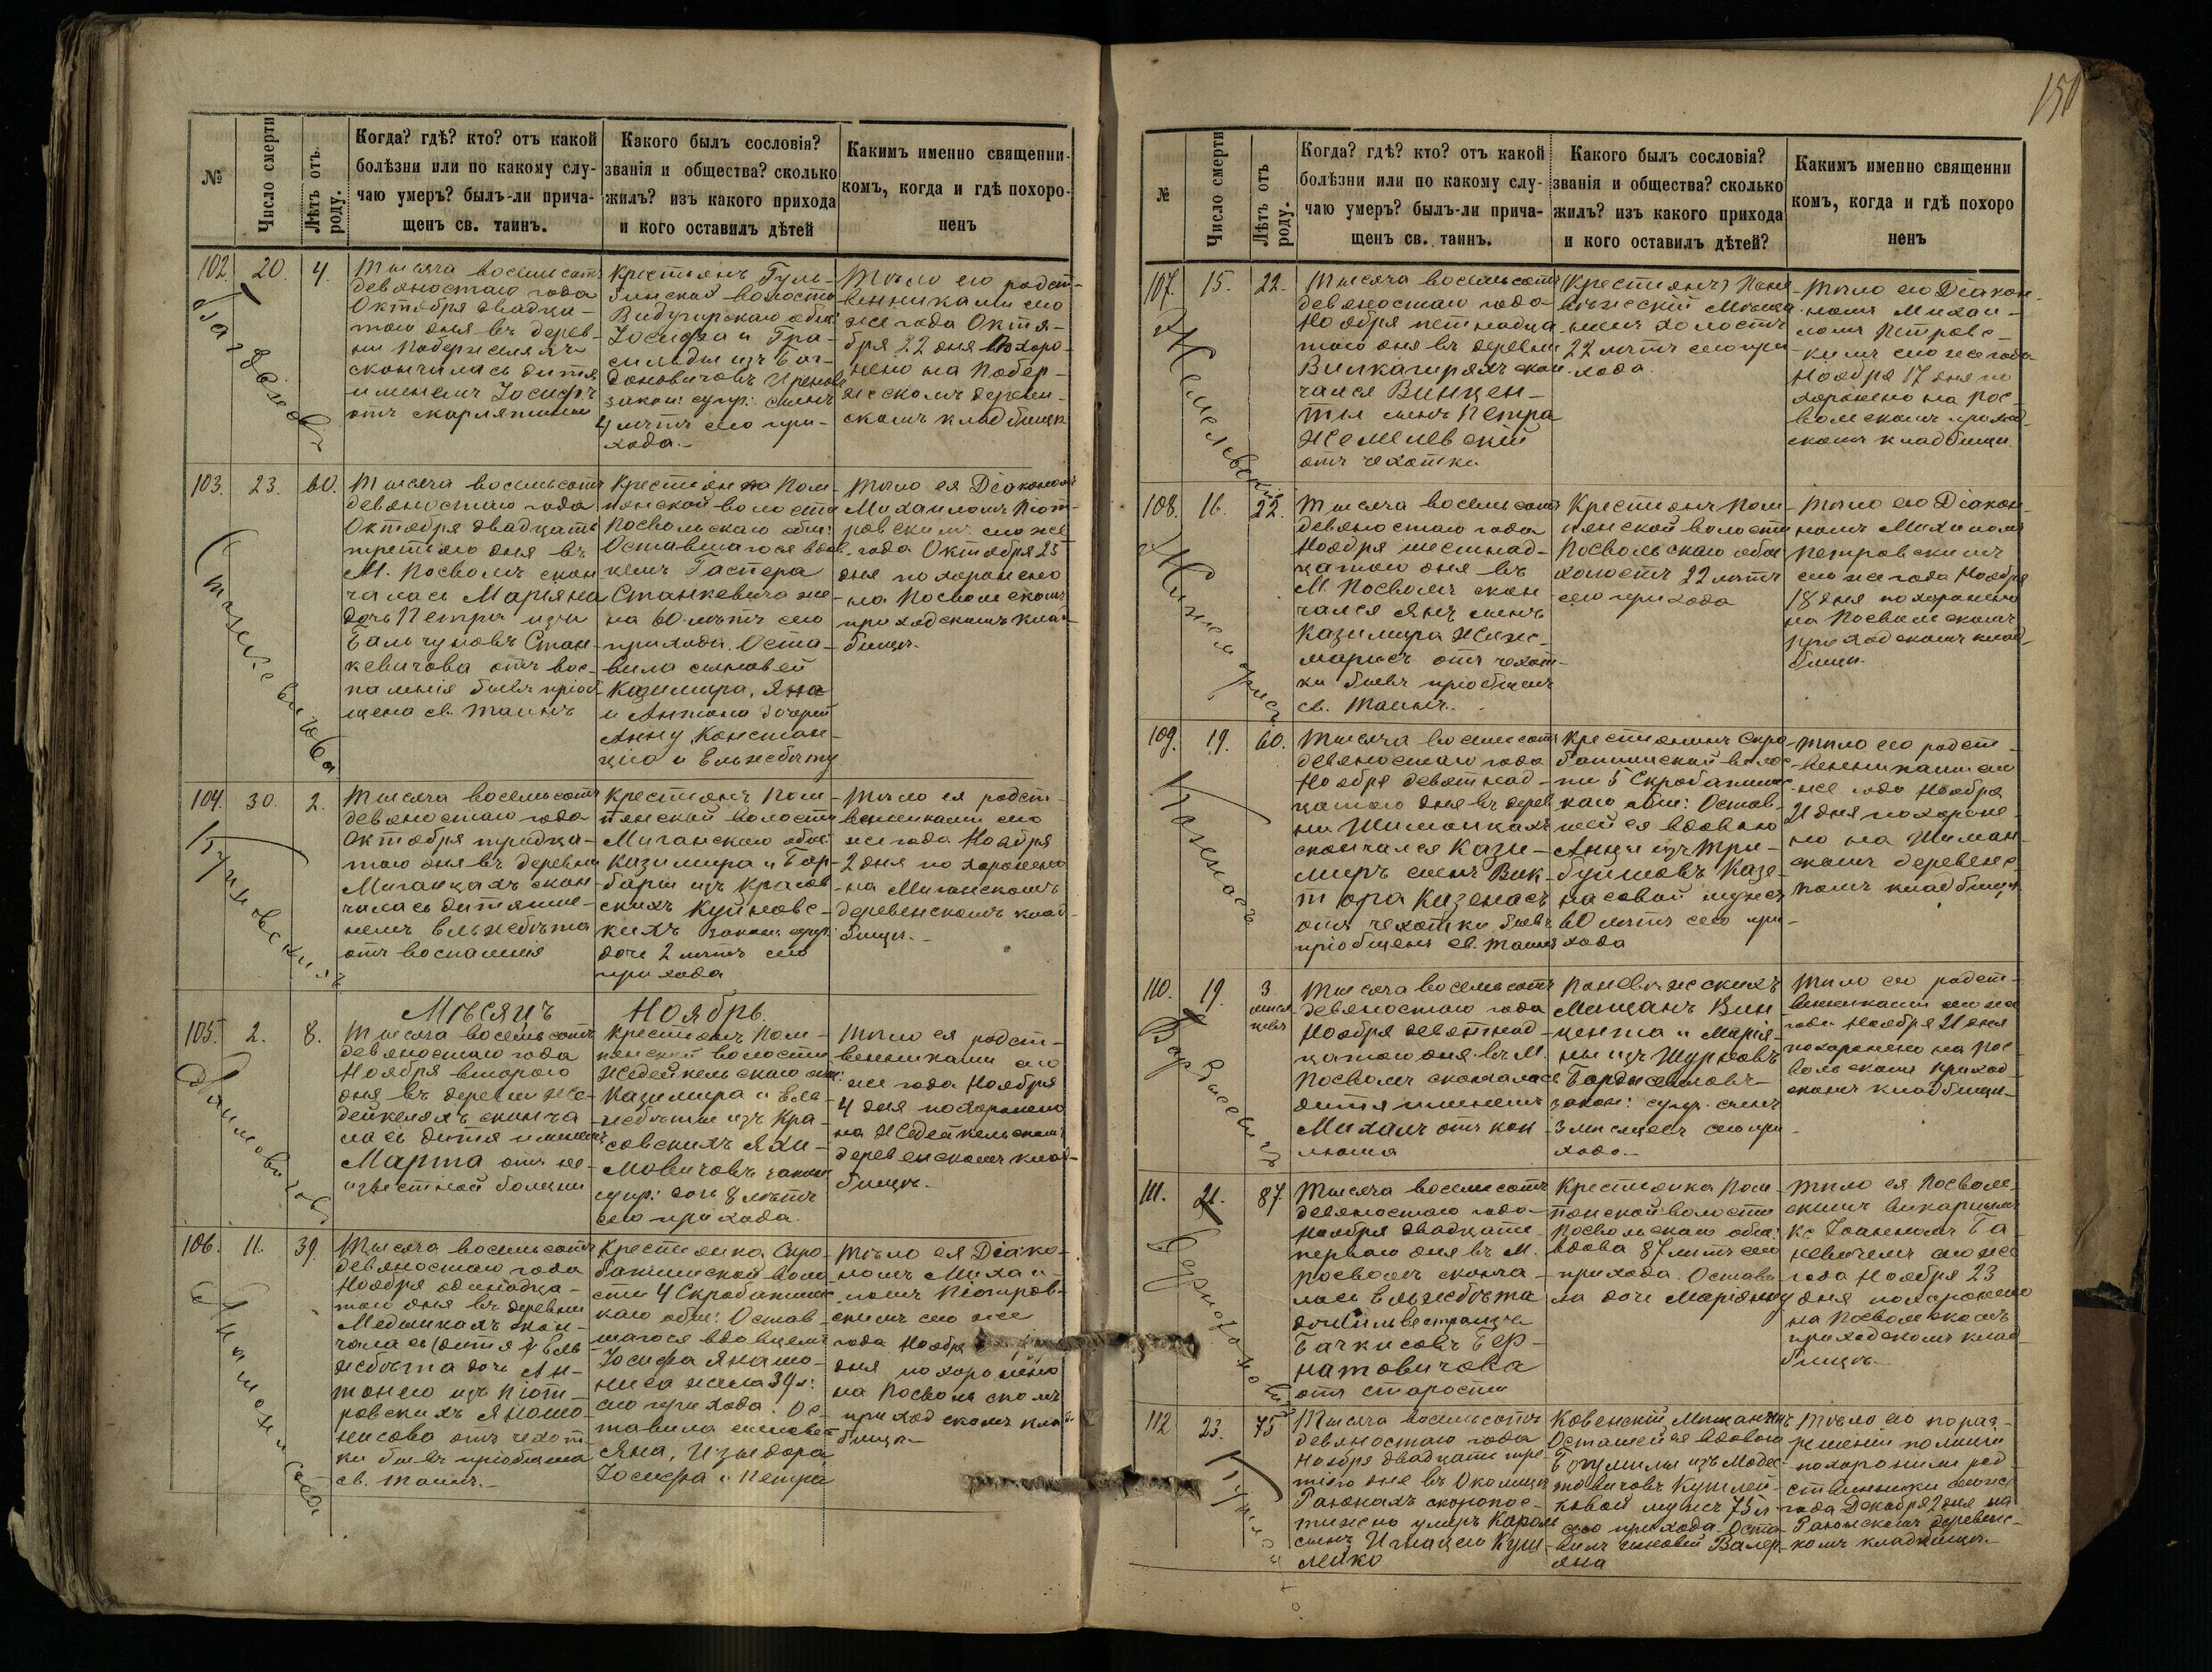 150
№
Число смерти
Лѣтъ отъ роду.
Когда? гдѣ? кто? отъ какой
болѣзни или по какому слу-
чаю умеръ? былъ-ли прича-
щенъ св. таинъ.
Какого былъ сословія?
званія и общества? сколько
жилъ? изъ какого прихода
и кого оставилъ дѣтей
Какимъ именно священни-
комъ, когда и гдѣ похоро-
ненъ
102. 20. 4.
Тысяча восемьсотъ
девяностаго года
Октября двадца-
таго дня въ дерев-
ни
скончалась дитя
именемъ Іосифъ
отъ скарлятины
Крестьянъ
волости
Іосифа и
изъ
закон: супр: сынъ
4 лѣтъ сего при-
хода.-
Тѣло его родст-
венниками сего
же года Октя-
бря 22 дня похоро-
нено на Побер-
жескомъ деревен-
скомъ кладбищѣ
103. 23. 60.
Тысяча восемьсотъ
девяностаго года
Октября двадцать
третьяго дня въ
М. Посволь скон
чалась Марьяна
дочь Петра изъ
Бальчуновъ Стан-
кевичова отъ вос-
паленія бывъ пріоб
щена св. таинъ
Крестьянка Пом-
пянской волости
Посвольскаго общ:
Оставшагося вдов
цемъ Гаспера
Станкевича же-
на 60 лѣтъ сего
прихода. Оста-
вила сыновей
Казимира, Яна
и Антона дочерей
Анну, Констан-
цію и Ельжбѣту
Тѣло ея Діакономъ
Михаиломъ Піот-
ровскимъ сего же
года Октября 25
дня похоронено
на Посвольскомъ
приходскомъ клад-
бищѣ.
104. 30. 2.
Тысяча восемьсотъ
девяностаго года
Октября тридца-
таго дня въ деревни
Миганцахъ скон
чалась дитя име-
немъ Ельжбѣта
отъ воспаленія
Крестьянъ Пом-
пянской волости
Миганскаго общ:
Казимира и Бар-
бары изъ Красов
скихъ Куновс-
кихъ закон: супр:
дочь 2 лѣтъ сего
прихода
Тѣло ея родст-
венниками сего
же года Ноября
2 дня похоронено
на Миганскомъ
деревенскомъ клад
бищѣ.-
Мѣсяцъ Ноябрь.
105. 2. 8.
Тысяча восемьсотъ
девяностаго года
Ноября втораго
дня въ деревни Же-
дейкеляхъ сконча
лась дитя именемъ
Марта отъ не-
извѣстной болѣзни
Крестьянъ Пом-
пянской волости
Жедейкельскаго общ:
Казимира и Ель-
жбѣты изъ Кра-
совскихъ Яхи-
мовичовъ закон:
супр: дочь 8 лѣтъ
сего прихода.
Тѣло ея родст-
венниками сего
же года Ноября
4 дня похоронено
на Жедейкельскомъ
деревенскомъ клад-
бищѣ.-
106. 11. 39.
Тысяча восемьсотъ
девяностаго года
Ноября одинадца-
таго дня въ деревни
скон-
чалась (дитя) Ель
жбѣта дочь Ан-
тонего изъ Піот-
ровскихъ Яномо-
нисова отъ чахот
ки бывъ пріобщена
св. таинъ.-
Крестьянка Скро-
башинской воло
сти 4 Скробашинс
каго общ: Остав-
шагося вдовцемъ
Іосифа Яномо-
ниса жена 39 л:
сего прихода. Ос-
тавила сыновей
Яна, Изыдора
Іосифа и Петра
Тѣло ея Діако-
номъ Михаи-
ломъ Піотров-
скимъ сего же
года Ноября
дня похоронено
на Посвольскомъ
приходскомъ клад
бищѣ.-
№
Число смерти
Лѣтъ отъ роду.
Когда? гдѣ? кто? отъ какой
болѣзни или по какому слу-
чаю умеръ? былъ-ли прича-
щенъ св. таинъ.
Какого былъ сословія?
званія и общества? сколько
жилъ? изъ какого прихода
и кого оставилъ дѣтей?
Какимъ именно священни
комъ, когда и гдѣ похоро
ненъ
107. 15. 22.
Тысяча восемьсотъ
девяностаго года
Ноября пятнадца
таго дня въ деревни
скон
чался Винцен-
ты сынъ Петра
Жемелевскій
отъ чахотки
холостъ
22 лѣтъ сего при
хода.
Тѣло его Діакон-
номъ Михаи-
ломъ Петровс-
кимъ сего же года
Ноября 17 дня по
хоронено на Пос-
вольскомъ приход
скомъ кладбищѣ.
108. 16. 22.
Тысяча восемьсотъ
девяностаго года
Ноября шестнад-
цатого дня въ
М. Посволь скон
чался Янъ сынъ
Казимира Жиж-
марисъ отъ чахот-
ки бывъ пріобщенъ
св. таинъ.
Крестьянъ Пом-
пянской волости
Посвольскаго общ
холостъ 22 лѣтъ
сего прихода
Тѣло его Діакон-
номъ Михаиломъ
Петровскимъ
сего же года Ноября
18 дня похоронено
на Посвольскомъ
приходскомъ клад
бищѣ.
109. 19. 60.
Тысяча восемьсотъ
девяностаго года
Ноября девятнад-
цатого дня въ дерев
ни Шиманцахъ
скончался Кази-
миръ сынъ Вик-
тора Казенасъ
отъ чахотки бывъ
пріобщенъ св. таинъ
Крестьянинъ Скро
башинской волос
ти 5 Скробашинс
каго общ: Остав-
шейся вдовою
Анны изъ Три-
бушовъ Казе-
насовой мужъ
60 лѣтъ сего при-
хода
Тѣло его родст-
венниками сего
же года Ноября
21 дня похороне-
но на Шиман-
скомъ деревенс
комъ кладбищѣ
110. 19. 3 мѣся цевъ
Тысяча восемьсотъ
девяностаго года
Ноября девятнад
цатого дня въ М.
Посволь скончалась
дитя именемъ
Михалъ отъ кок
люша
Поневѣжскихъ
Мѣщанъ Вин
цента и Марія-
ны изъ Шурновъ
закон: супр: сынъ
3 мѣсяцевъ сего при
хода.-
Тѣло его родст-
венниками сего же
года Ноября 21 дня
похоронено на Пос-
вольскомъ приход-
скомъ кладбищѣ.-
111. 21. 87
Тысяча восемьсотъ
девяностаго года
Ноября двадцать
перваго дня въ М.
Посволь сконча-
лась Ельжбѣта
дочь Сильвестра изъ
Бачкисовъ Бер-
натовичова
отъ старости
Крестьянка Пом-
пянской волости
Посвольскаго общ:
вдова 87 лѣтъ сего
прихода. Остави-
ла дочь Маріянну
Тѣло ея Посволь-
скимъ викарнымъ
Кс Іоанномъ Га-
невичемъ сего же
года Ноября 23
дня похоронено
на Посвольскомъ
приходскомъ клад
бищѣ.-
112 23. 75
Тысяча восемьсотъ
девяностаго года
Ноября двадцать тре-
тьяго дня въ Околицѣ
скоропос-
тижно умеръ Кароль
сынъ Игнацего Куш-
лейко
Ковенскій Мѣщанинъ
Оставшейся вдовою
Богумилы изъ Модес-
товичовъ Кушлей-
ковой мужъ 75 л-
сего прихода. Оста-
вилъ сыновей Валер-
яна
Тѣло его по раз-
решеніи полиціи
похоронили род-
ственники сего же
года Декабря 2 дня на
деревенс-
комъ кладбищѣ.-